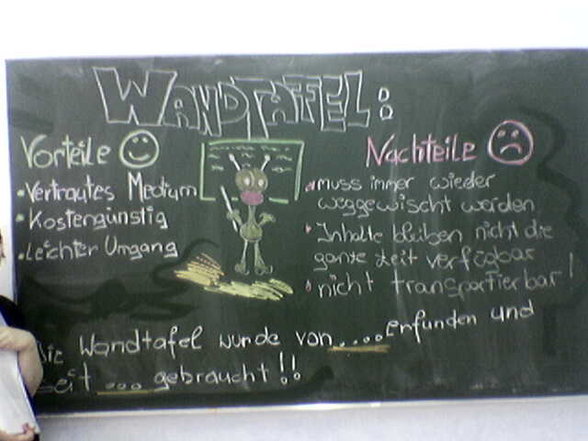 WANDTAFEL:
Vorteile
• Vertrautes Medium
• Kostengünstig
• Leichter Umgang
Nachteile
• muss immer wieder
weggewischt worden
• Inhalte bleiben nicht die
ganze Zeit verfügbar
• nicht transportierbar!
Die Wandtafel wurde von .... erfunden und
seit .... gebraucht!!